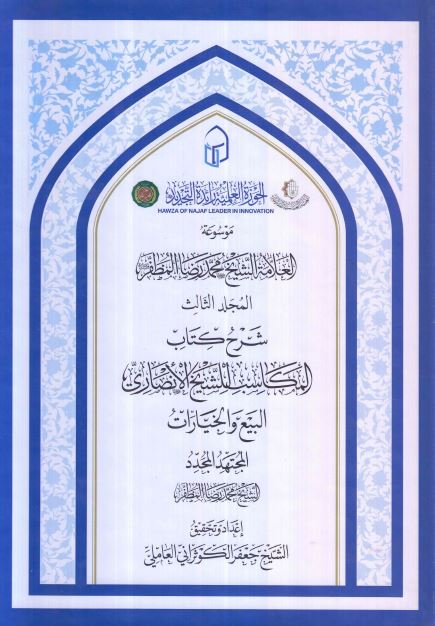 الحوزة العلمية رائدة التجديد
HAWZA OF NAJAF LEADER IN INNOVATION
موسوعة
العلامة الشيخ محمد رضا المظفر
المجلد الثالث
شرح كتاب
المكاسب للشيخ الأنصاري
البيع والخيارات
المجتهد المجدد
الشيخ محمد رضا المظفر
إعداد وتحقيق
الشيخ جعفر الكوثراني العاملي